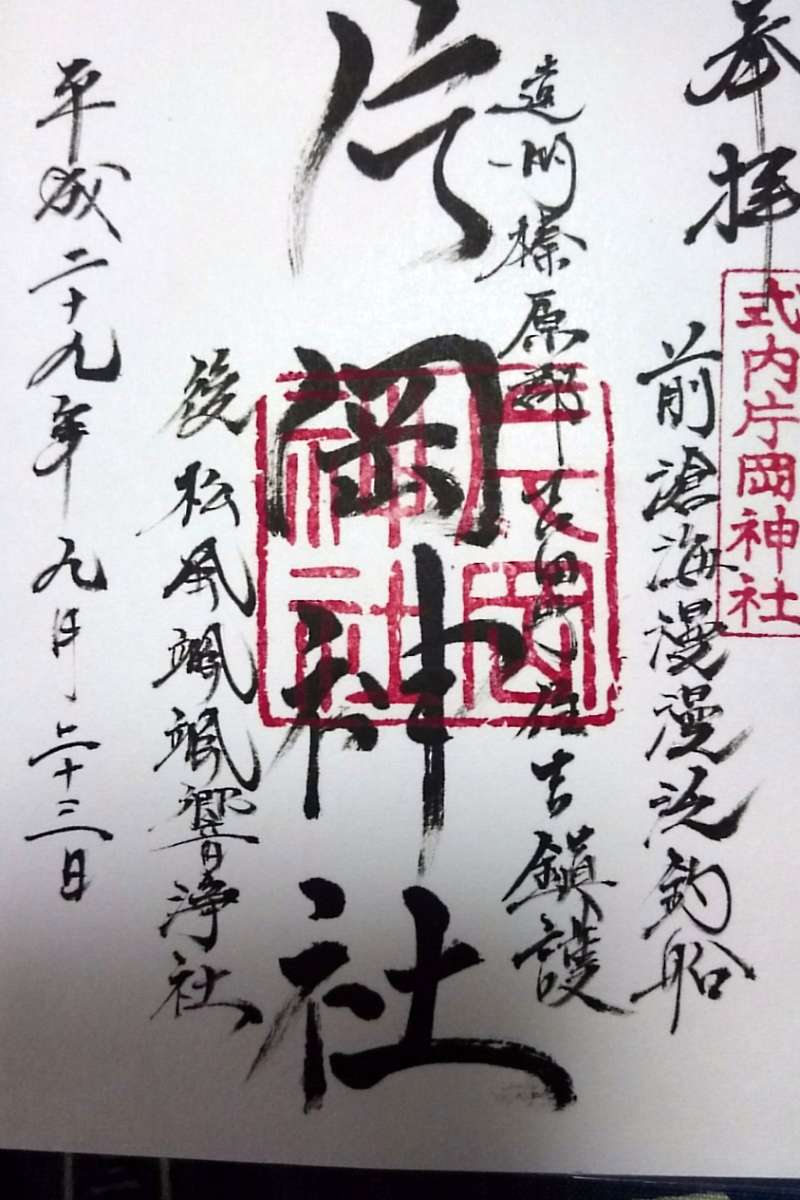 奉拝
式内片岡神社
前滄海漫漫泛釣船
遠州榛原郡吉田町住吉鎮護
片岡神社
片岡神社
後松風颯颯響浄社
平成二十九年九月二十三日